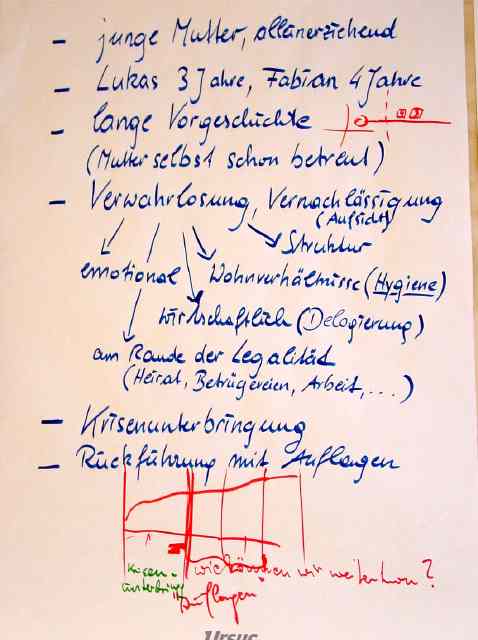 - junge Mutter, alleinerziehend
- Lukas 3 Jahre, Fabian 4 Jahre
- lange Vorgeschichte
(Mutter selbst schon betreut)
- Verwahrlosung, Vernachlässigung
(Aufsicht)
Struktur
emotional Wohnverhältnisse (Hygiene)
wirtschaftlich (Delogierung)
am Rande der Legalität
(Heirat, Betrügereien, Arbeit, ...)
- Krisenunterbringung
- Rückführung mit Auflagen
wie können wir weiter tun?
"Auflagen"
Ursus